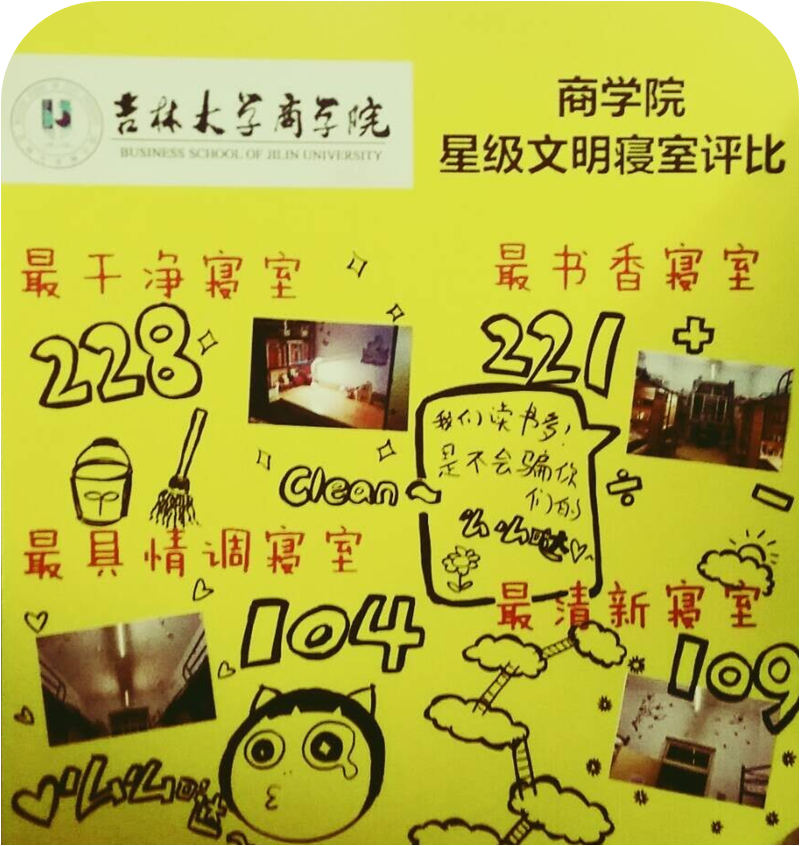 吉林大学商学院
BUSINESS SCHOOL OF JILIN UNIVERSITY
商学院
星级文明寝室评比
最干净寝室
228
最书香寝室
221
我们读书多!
是不会骗你
们的
么么哒
Clean~
最具情调寝室
104
最清新寝室
109
么么哒